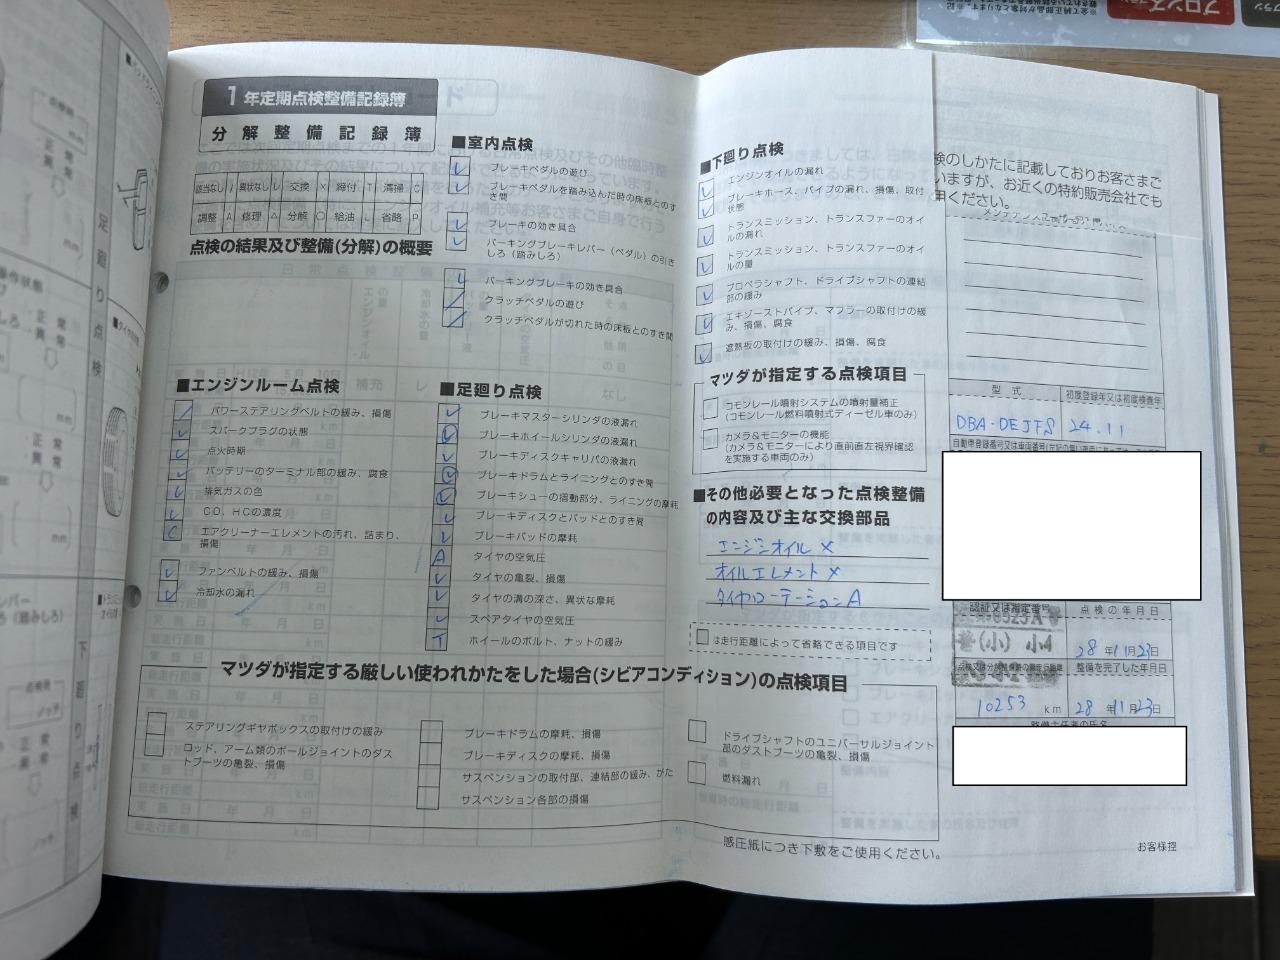 1年定期点検整備記録簿
分解整備記録簿
該当なし / 異状なし レ 交換 × 締付 T 清掃 C
調整 A 修理 △ 分解 ○ 給油 L 省略 P
点検の結果及び整備(分解)の概要
■エンジンルーム点検
パワーステアリングベルトの緩み、損傷
スパークプラグの状態
点火時期
バッテリーのターミナル部の緩み、腐食
排気ガスの色
CO、HCの濃度
C エアクリーナーエレメントの汚れ、詰まり、
損傷
ファンベルトの緩み、損傷
冷却水の漏れ
■室内点検
ブレーキペダルの遊び
ブレーキペダルを踏み込んだ時の床板とのす
き間
ブレーキの効き具合
パーキングブレーキレバー(ペダル)の引き
しろ(踏みしろ)
パーキングブレーキの効き具合
クラッチペダルの遊び
クラッチペダルが切れた時の床板とのすき間
■足廻り点検
ブレーキマスターシリンダの液漏れ
ブレーキホイールシリンダの液漏れ
ブレーキディスクキャリパの液漏れ
ブレーキドラムとライニングとのすき間
ブレーキシューの摺動部分、ライニングの摩耗
ブレーキディスクとパッドとのすき間
ブレーキパッドの摩耗
A タイヤの空気圧
タイヤの亀裂、損傷
タイヤの溝の深さ、異状な摩耗
スペアタイヤの空気圧
T ホイールのボルト、ナットの緩み
■下廻り点検
エンジンオイルの漏れ
ブレーキホース、パイプの漏れ、損傷、取付
状態
トランスミッション、トランスファーのオイ
ルの漏れ
トランスミッション、トランスファーのオイ
ルの量
プロペラシャフト、ドライブシャフトの連結
部の緩み
エキゾーストパイプ、マフラーの取付けの緩
み、損傷、腐食
遮熱板の取付けの緩み、損傷、腐食
マツダが指定する点検項目
コモンレール噴射システムの噴射量補正
(コモンレール燃料噴射式ディーゼル車のみ)
カメラ&モニターの機能
(カメラ&モニターにより直前直左視界確認
を実施する車両のみ)
■その他必要となった点検整備
の内容及び主な交換部品
エンジンオイル ×
オイルエレメント ×
タイヤローテーション A
は走行距離によって省略できる項目です
マツダが指定する厳しい使われかたをした場合(シビアコンディション)の点検項目
ステアリングギヤボックスの取付けの緩み
ロッド、アーム類のボールジョイントのダス
トブーツの亀裂、損傷
ブレーキドラムの摩耗、損傷
ブレーキディスクの摩耗、損傷
サスペンションの取付部、連結部の緩み、がた
サスペンション各部の損傷
ドライブシャフトのユニバーサルジョイント
部のダストブーツの亀裂、損傷
燃料漏れ
感圧紙につき下敷をご使用ください。
検のしかたに記載しておりお客さまご
いますが、お近くの特約販売会社でも
用ください。
型式 初度登録年又は初度検査年
DBA-DEJFS 24.11
認証又は指定番号 点検の年月日
28年11月23日
整備を完了した年月日
10253 km 28年11月23日
お客様控
足廻り点検
下廻り点検